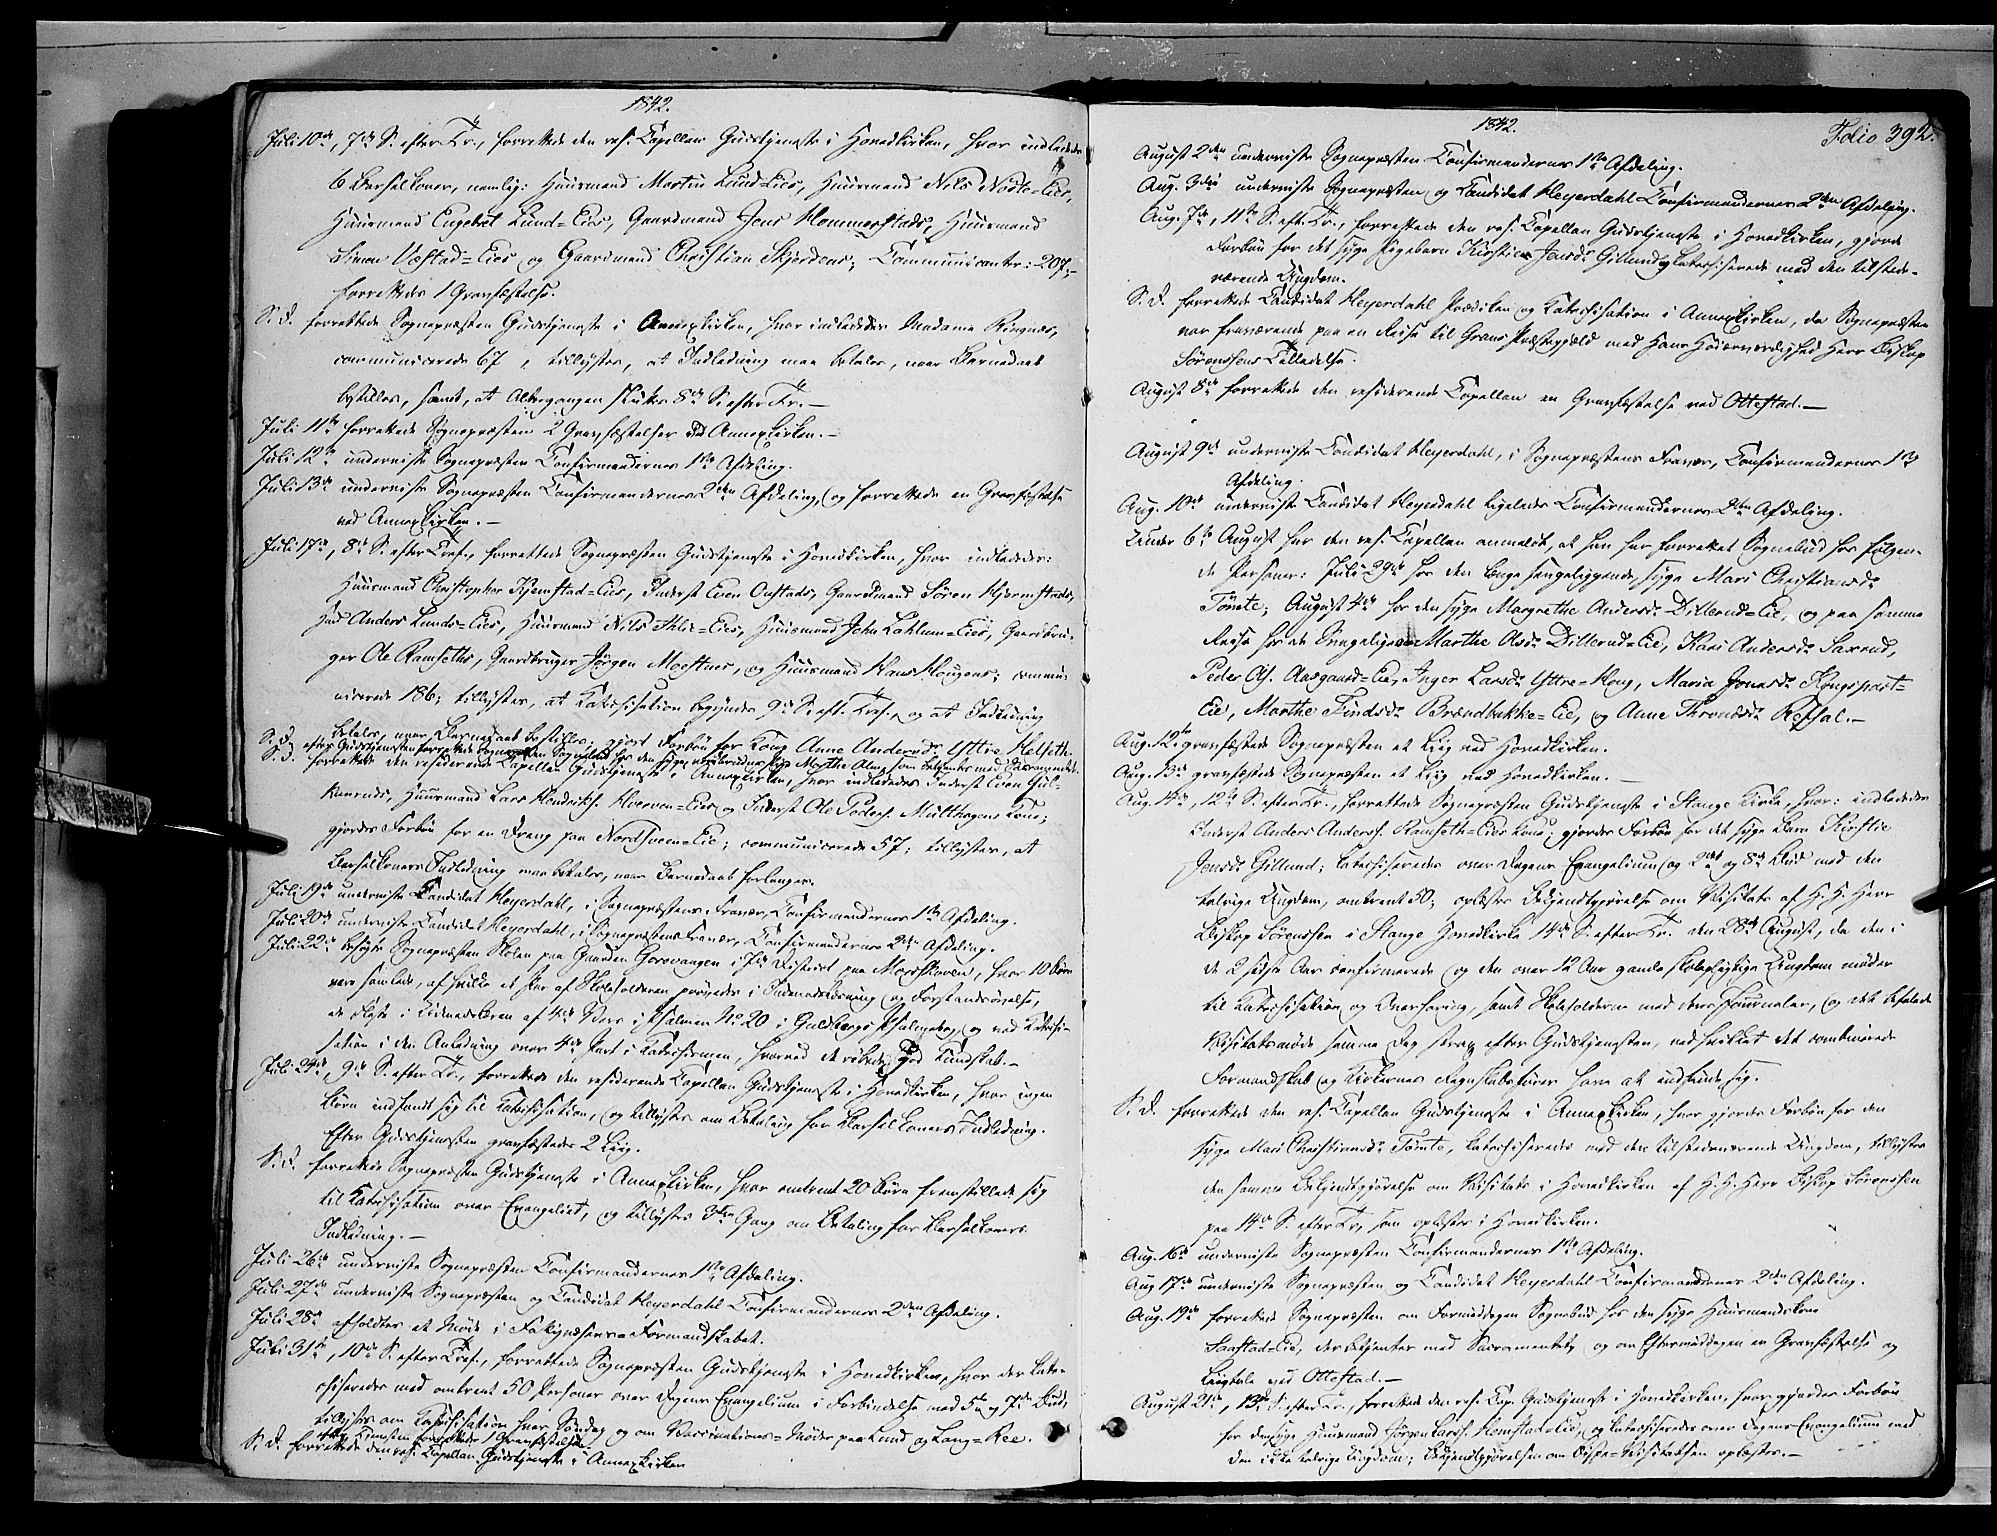 1842.
Juli 10de, 7de S. efter Tr., forrettede den res. Capellan Gudstjeneste i Hovedkirken, hvor indlededes
6 Barselkoner, nemlig: Huusmand Martin Lund-Eies, Huusmand Nils Nødle-Eies,
Huusmand Engebret Lund-Eies, Gaardmand Jens Hommerstads, Huusmand
Simon Væstad-Eies og Gaardmand Christian Skjerdens; Communicanter: 207;
forrettedes 1 Gravfæstelse.
S. D. forrettede Sognepræsten Gudstjeneste i Annexkirken, hvor indlededes Madame Ringnes,
communicerede 67, tillystes, at Indledning maa betales, naar Barnedaab
bestilles, samt, at Altergangen sluttes 8de S. efter Tr.—
Juli 11te forrettede Sognepræsten 2 Gravfæstelser ved Annexkirken.—
Juli 12te underviste Sognepræsten Confirmandernes 1ste Afdeling.
Juli 13de underviste Sognepræsten Confirmandernes 2den Afdeling, og forrettede en Gravfæstelse
ved Annexkirken.—
Juli 17de, 8de S. efter Tref., forrettede Sognepræsten Gudstjeneste i Hovedkirken, hvor indlededes:
Huusmand Christopher Kjemstad-Eies, Inderst Even Oustads, Gaardmand Sören Hjermstads,
Huus Anders Lunds-Eies, Huusmand Nils Ihle-Eies, Huusmand John Lohlum-Eies, Gaardbru-
ger Ole Ramseths, Gaardbruger Jørgen Moestues, og Huusmand Hans Hougens; commu-
nicerede 186; tillystes, at Katechisation begyndes 9de S. eft. Tref., og at Indledning
betales, naar Barnedaab bestilles; gjort Forbøn for Kone Anne Andersdr. Yttre Helseth.
S. D. efter Gudstjenesten forrettede Sognepræsten Sognebud hos den syge Marthe Olsen, som betjentes med Sacramentet.
S. D. forrettede den residerende Capellan Gudstjeneste i Annexkirken, hvor indlededes Inderst Even Gul-
lerud, Huusmand Lars Hendriks. Hverven-Eies og Inderst Ole Peders. Mülthagens Kone;
gjordes Forbøn for en Dreng paa Nordsveen-Eie; communicerede 57; tillystes, at
Barselkoners Indledning maa betales, naar Barnedaab forlanges.
Juli 19de underviste Candidat Heyerdahl, i Sognepræstens Fravær, Confirmandernes 1ste Afdeling.
Juli 20de underviste Candidat Heyerdahl, i Sognepræstens Fravær, Confirmandernes 2den Afdeling.
Juli 22de besøgte Sognepræsten Skolen paa Gaarden Gorovangen i 7de District paa Morskoven, hvor 10 Børn
vare samlede, af hvilke et Par af Skoleholderen prøvedes i Indenadslæsning og Forstandsøvelse,
de læste i Udenadslæren af 4de Vers i Psalmen No 20 i Guldbergs Psalmebog, og ved Katechi-
sation i den Anledning over 4de Part i Katechismen, hvorved de viste god Kundskab.—
Juli 24de, 9de S. efter Tr., forrettede den residerende Capellan Gudstjeneste i Hovedkirken, hvor ingen
Børn indfandt sig til Katechisation, og tillystes om Betaling for Barselkoners Indledning.
Efter Gudstjenesten gravfæstedes 2 Liig.
S. D. forrettede Sognepræsten Gudstjeneste i Annexkirken, hvor omtrent 20 Børn fremstillede sig
til Katechisation over Evangeliet, og tillystes 3die Gang om Betaling for Barselkoners
Indledning.—
Juli 26de underviste Sognepræsten Confirmandernes 1ste Afdeling.
Juli 27de underviste Sognepræsten og Candidat Heyerdahl Confirmandernes 2den Afdeling.
Juli 28de afholdtes et Møde i Formandskabet.
Juli 31te, 10de S. efter Tref., forrettede Sognepræsten Gudstjeneste i Hovedkirken, hvor der kate-
chiseredes med omtrent 50 Personer over Dagens Evangelium i Forbindelse med 5te og 7de Bud,
tillystes om Katechisation hver Søndag og om Vaccinations-Møder paa Lund og Lang-Ree.
efter Tjenesten forrettedes 1 Gravfæstelse.
S. D. forrettede den res. Capellan Gudstjeneste i Annexkirken
1842.
Folio 392.
August 2den underviste Sognepræsten Confirmandernes 1ste Afdeling.
Aug. 3die underviste Sognepræsten og Candidat Heyerdahl Confirmandernes 2den Afdeling.
Aug. 7de, 11te S. eft. Tr., forrettede den res. Capellan Gudstjeneste i Hovedkirken, gjorde
Forbøn for det syge Pigebarn Kirstine Jensdr. Gillund, og katechiserede med den tilstede-
værende Ungdom.
S. D. forrettede Candidat Heyerdahl Prædiken og Katechisation i Annexkirken, da Sognepræsten
var fraværende paa en Reise til Grans Præstegjæld med Hans Høiærværdighed Herr Biskop
Sørenssens Tilladelse.
August 8de forrettede den residerende Capellan en Gravfæstelse ved Ottestad.—
August 9de underviste Candidat Heyerdahl, i Sognepræstens Fravær, Confirmandernes 1ste
Afdeling.
Aug. 10de underviste Candidat Heyerdahl ligeledes Confirmandernes 2den Afdeling.
Under 6te August har den res. Capellan anmeldt, at han har forrettet Sognebud hos følgen-
de Personer: Juli 29de hos den længe sengeliggende, syge Mari Christiansdr.
Tømte; August 4de hos den syge Margrethe Andersdr. Dillerud-Eie, og paa samme
Reise hos de Svagelige Marthe Olsdr. Dillerud-Eie, Kari Andersdr. Saxrud,
Peder Ols. Aasgaard-Eie, Inger Larsdr. Yttre-Houg, Maria Jonasdr. Kongsparts-
Eie, Marthe Findsdr. Brændbakke-Eie, og Anne Thronsdr. Refsal.—
Aug. 12te gravfæstede Sognepræsten et Liig ved Hovedkirken.
Aug. 13de gravfæstede Sognepræsten et Liig ved Hovedkirken.—
Aug. 14de, 12te S. efter Tr., forrettede Sognepræsten Gudstjeneste i Stange Kirke, hvor: indlededes
Inderst Anders Anders. Ramseth-Eies Kone; gjordes Forbøn for det syge Barn Kirstie
Jensdr. Gillund; katechiseredes over Dagens Evangelium og 2det og 8de Bud med den
talrige Ungdom, omtrent 50; oplæstes Bekjendtgjørelse om Visitats af H. H. Herr
Biskop Sørenssen i Stange Hovedkirke 14de S. efter Tr. den 28de August, da den i
de 2 sidste Aar confirmerede og den over 12 Aar gamle skolepligtige Ungdom møder
til Katechisation og Overhøring, samt Skoleholderne med deres Journaler, og det befalede
Visitatsmøde samme Dag strax efter Gudstjenesten, ved hvilket det combinerede
Formandskab og Kirkernes Regnskabsfører have at indfinde sig.
S. D. forrettede den res. Capellan Gudstjeneste i Annexkirken, hvor gjordes Forbøn for den
syge Mari Christiansdr. Tømte, katechiserede med den tilstedeværende Ungdom, tillystes
den samme Bekjendtgjørelse om Visitats i Hovedkirken af H. H. Herr Biskop Sørenssen
paa 14de S. efter Tr., som oplæstes i Hovedkirken.
Aug. 16de underviste Sognepræsten Confirmandernes 1ste Afdeling.
Aug 17de underviste Sognepræsten og Candidat Heyerdahl Confirmandernes 2den Afdeling.
Aug. 19de forrettede Sognepræsten om Formiddagen Sognebud hos den syge Huusmandskone
Saastad-Eie, der betjentes med Sacramentet, og om Eftermiddagen en Gravfæstelse og
Liigtale ved Ottestad.—
August 21de, 13de S. efter Tr., forrettede den res. Cap. Gudstjeneste i Hovedkirken, hvor gjordes Forbøn
for den syge Huusmand Jørgen Larss. Hemstad-Eie, og katechiseredes over Dagens Evangelium med
den ikke talrige Ungdom; Bekjendtgjørelsen om Bispe-Visitatsen oplæstes.—